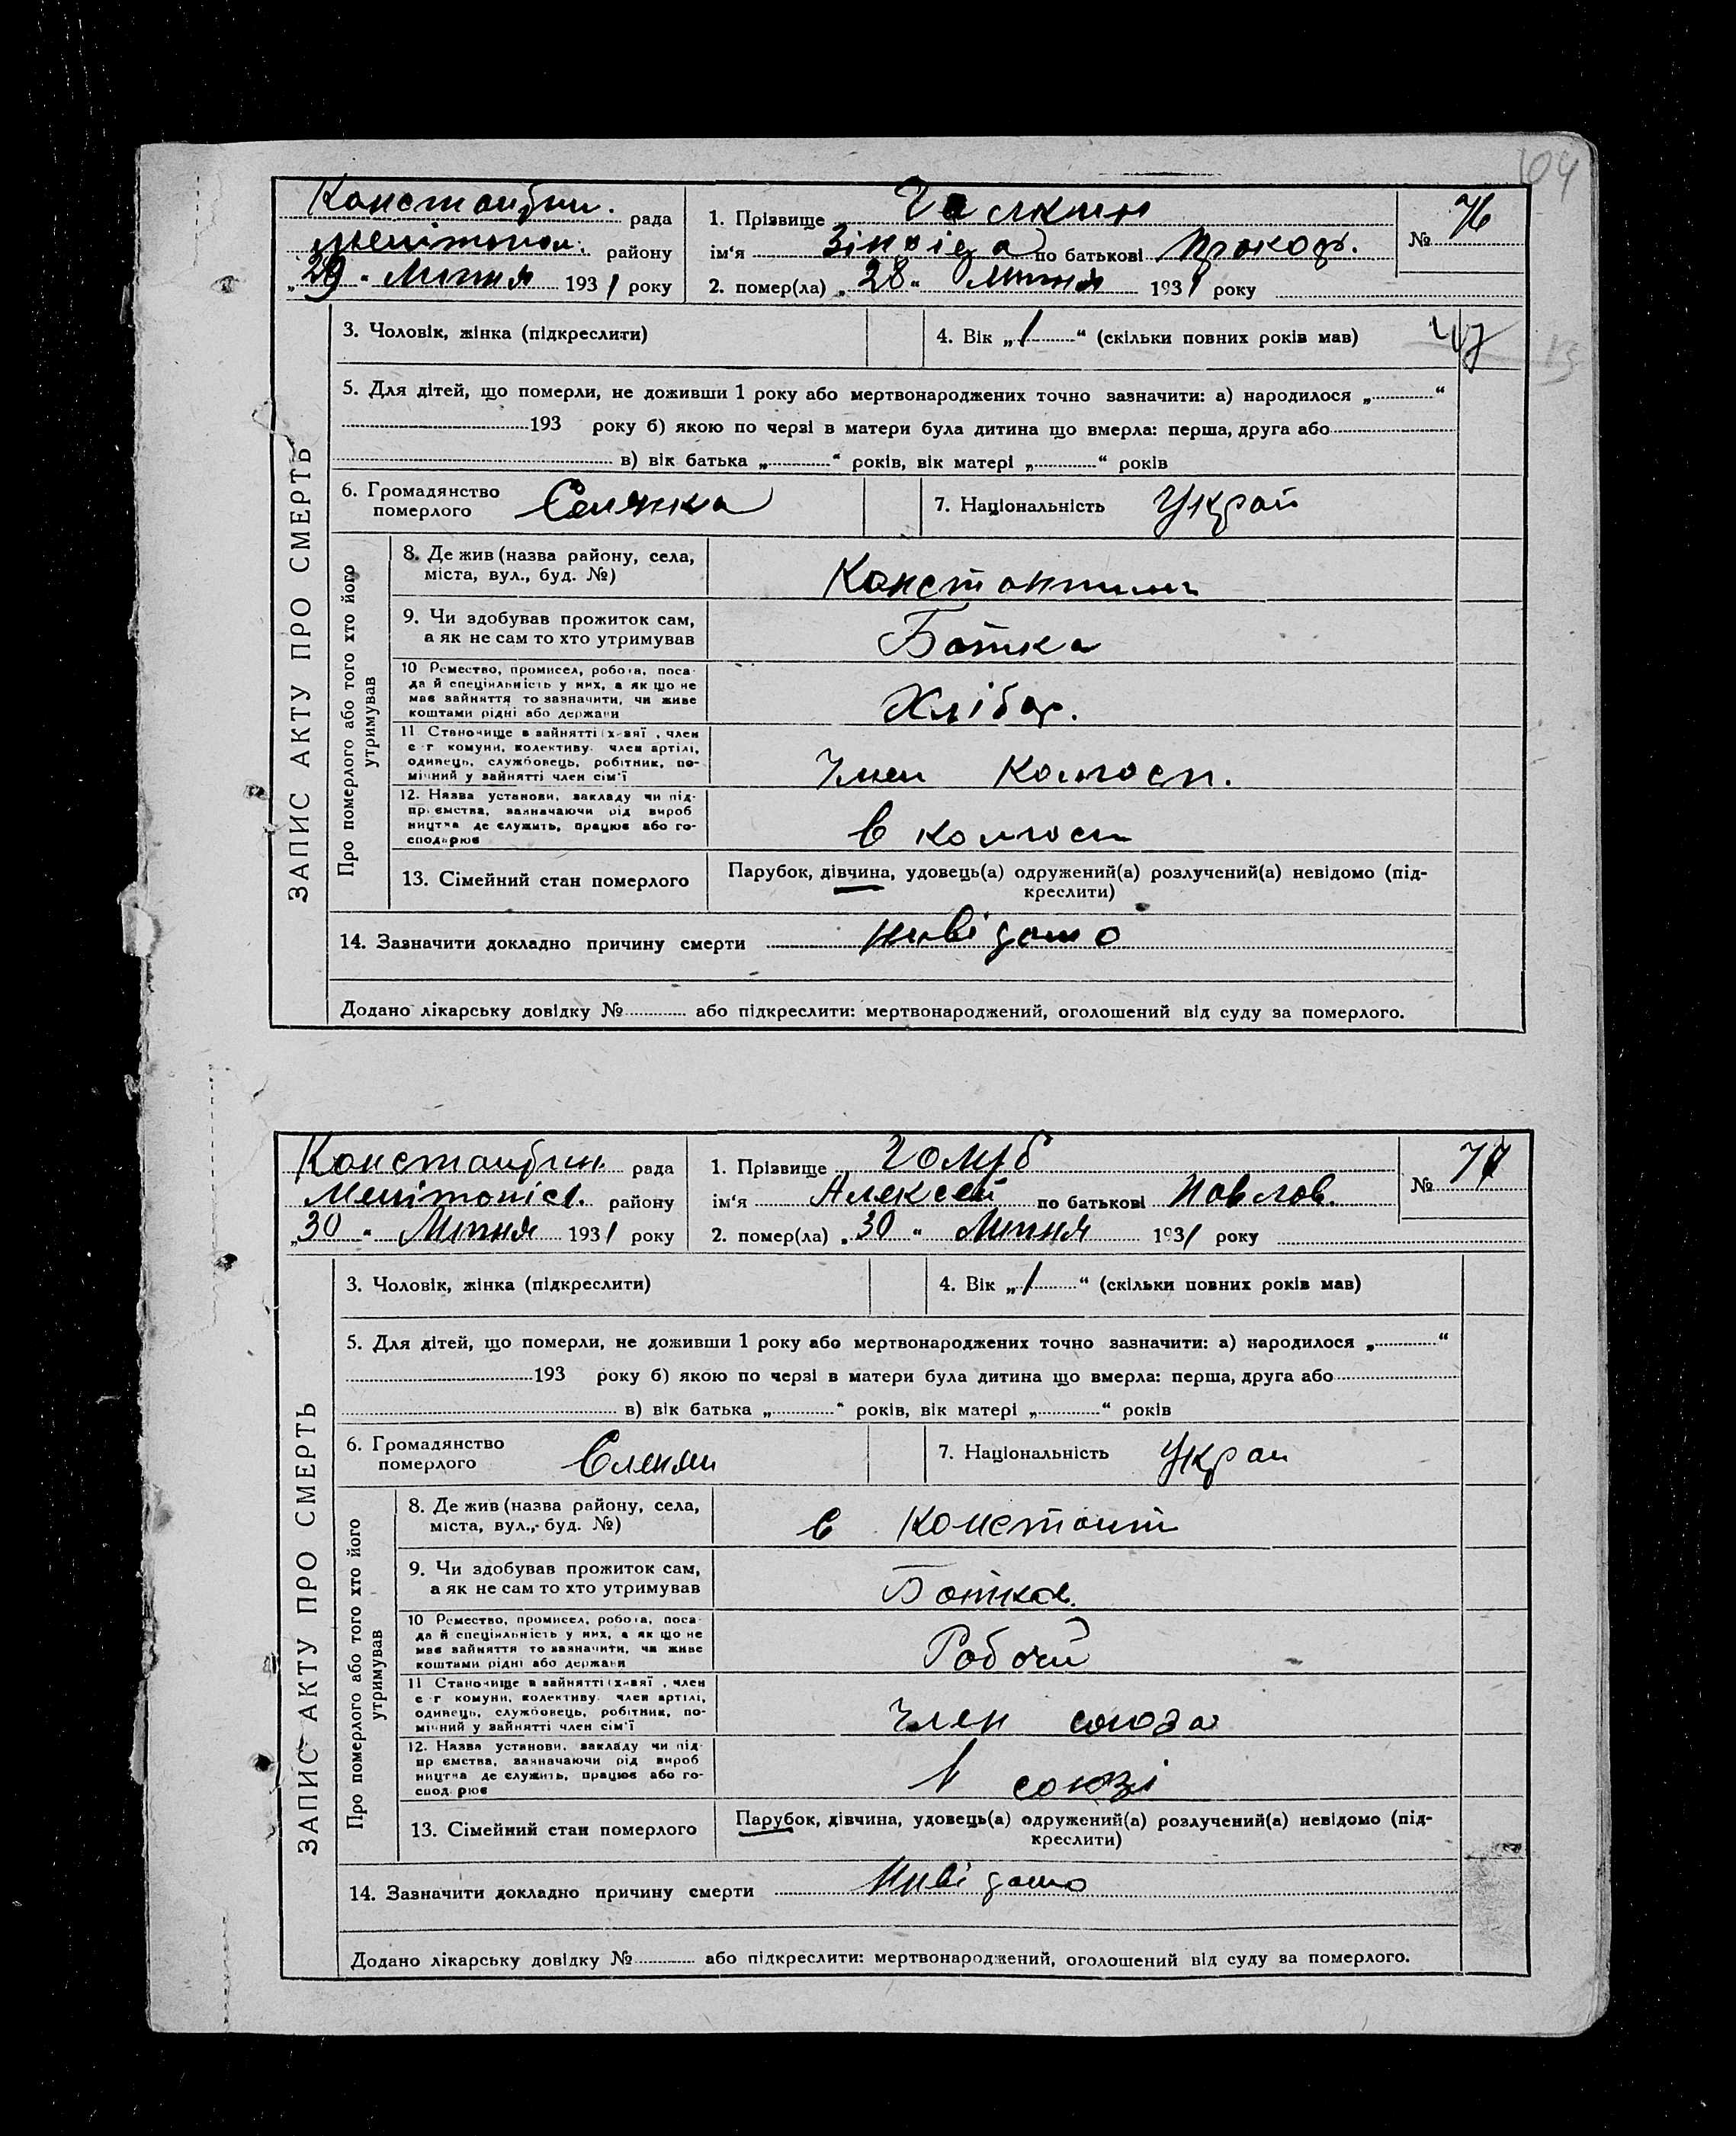 104
Константин. рада
Мелітопол. району
„29" Липня 1931 року
1. Прізвище Галкин
ім'я Зіновіда по батькові Прокоф.
2. помер(ла) „28" Липня 1931 року
№ 76
ЗАПИС АКТУ ПРО СМЕРТЬ
3. Чоловік, жінка (підкреслити)
4. Вік „1" (скільки повних років мав)
47
13
5. Для дітей, що померли, не доживши 1 року або мертвонароджених точно зазначити: а) народилося „ "
193 року б) якою по черзі в матери була дитина що вмерла: перша, друга або
в) вік батька „ " років, вік матері „ " років
6. Громадянство померлого Селянка
7. Національність Украй
Про померлого або того хто його утримував
8. Де жив (назва району, села,
міста, вул., буд. №)
Константин
9. Чи здобував прожиток сам,
а як не сам то хто утримував
Батька
10 Ремество, промисел, робота, поса-
да й спеціяльність у них, а як що не
має зайняття то зазначити, чи живе
коштами рідні або держави
Хлібор.
11 Становище в зайнятті (х-зяї , член
с-г комуни, колективу. член артілі,
одинець, службовець, робітник, по-
мічний у зайнятті член сім'ї
Член колгосп.
12. Назва установи, закладу чи під-
приємства, зазначаючи рід вироб
ництва де служить, працює або го-
сподарює
в колгосп
13. Сімейний стан померлого
Парубок, дівчина, удовець(а) одружений(а) розлучений(а) невідомо (під-
креслити)
14. Зазначити докладно причину смерти нивідомо
Додано лікарську довідку № або підкреслити: мертвонароджений, оголошений від суду за померлого.
Константин. рада
Мелітопіл. району
„30" Липня 1931 року
1. Прізвище Голуб
ім'я Алексей по батькові Павлов.
2. помер(ла) „30" Липня 1931 року
№ 77
ЗАПИС АКТУ ПРО СМЕРТЬ
3. Чоловік, жінка (підкреслити)
4. Вік „1" (скільки повних років мав)
5. Для дітей, що померли, не доживши 1 року або мертвонароджених точно зазначити: а) народилося „ "
193 року б) якою по черзі в матери була дитина що вмерла: перша, друга або
в) вік батька „ " років, вік матері „ " років
6. Громадянство померлого
7. Національність Украи
Про померлого або того хто його утримував
8. Де жив (назва району, села,
міста, вул., буд. №)
в Констант
9. Чи здобував прожиток сам,
а як не сам то хто утримував
Батька
10 Ремество, промисел, робота, поса-
да й спеціяльність у них, а як що не
має зайняття то зазначити, чи живе
коштами рідні або держави
Робочй
11 Становище в зайнятті (х-зяї , член
с-г комуни, колективу. член артілі,
одинець, службовець, робітник, по-
мічний у зайнятті член сім'ї
Член союза
12. Назва установи, закладу чи під-
приємства, зазначаючи рід вироб
ництва де служить, працює або го-
сподарює
в союзі
13. Сімейний стан померлого
Парубок, дівчина, удовець(а) одружений(а) розлучений(а) невідомо (під-
креслити)
14. Зазначити докладно причину смерти нивідомо
Додано лікарську довідку № або підкреслити: мертвонароджений, оголошений від суду за померлого.